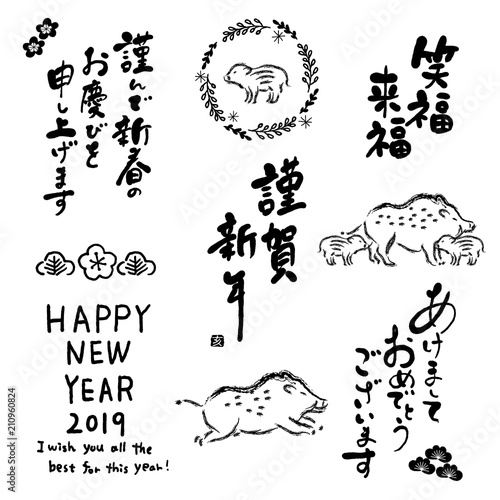 謹んで新春の
お慶びを
申し上げます
笑福
来福
謹賀
新年
亥
HAPPY
NEW
YEAR
2019
I wish you all the
best for this year!
あけまして
おめでとう
ございます
Adobe Stock | #210960824